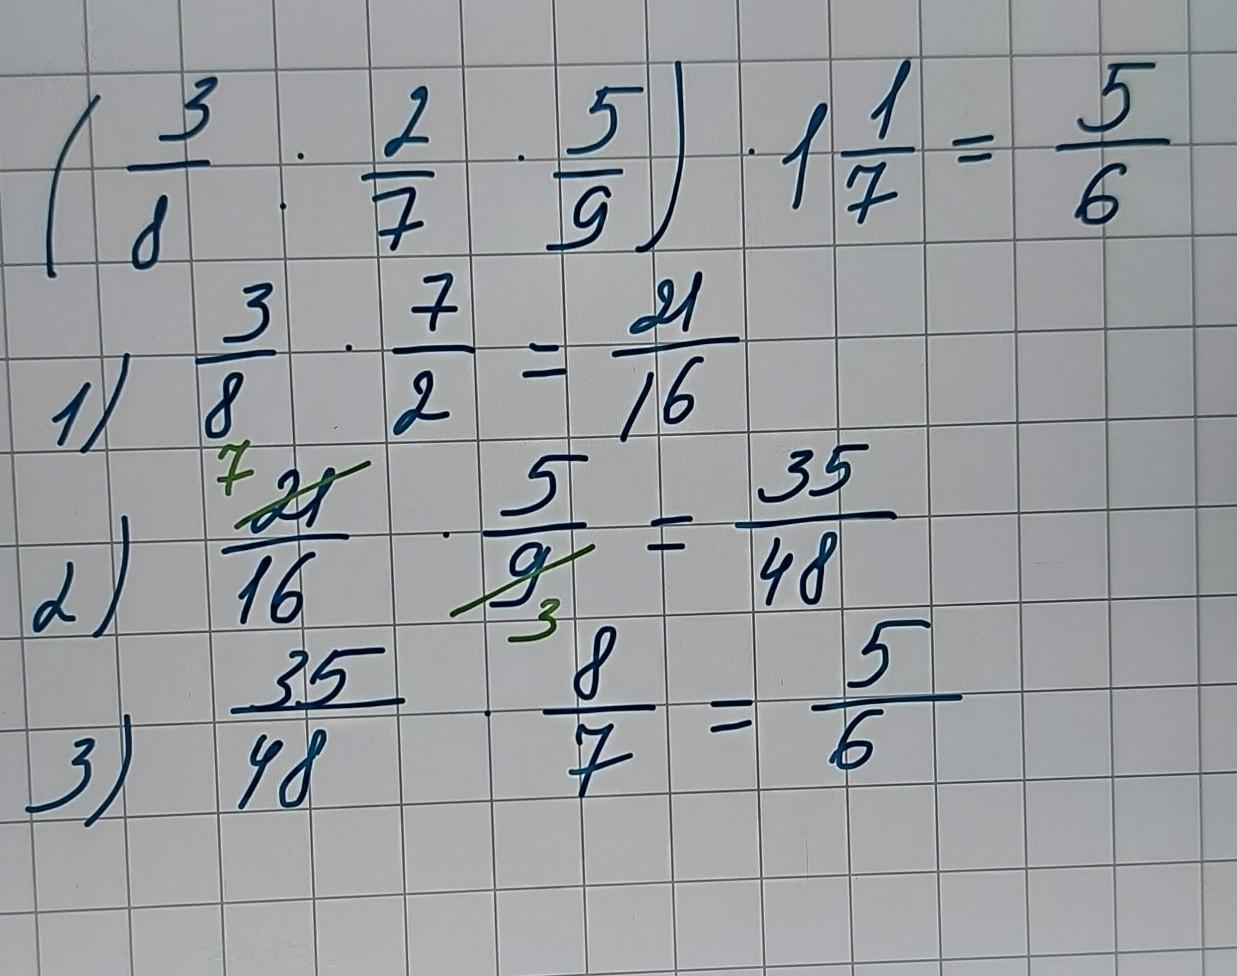 (3/8 : 2/7 · 5/9) · 1 1/7 = 5/6
1) 3/8 · 7/2 = 21/16
2) 7 21/16 · 5/9 3 = 35/48
3) 35/48 · 8/7 = 5/6